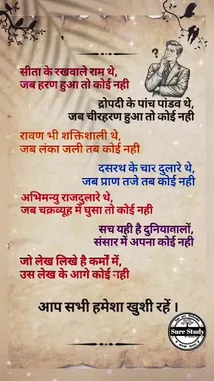 सीता के रखवाले राम थे,
जब हरण हुआ तो कोई नही
द्रोपदी के पांच पांडव थे,
जब चीरहरण हुआ तो कोई नही
रावण भी शक्तिशाली थे,
जब लंका जली तब कोई नही
दसरथ के चार दुलारे थे,
जब प्राण तजे तब कोई नही
अभिमन्यु राजदुलारे थे,
जब चक्रव्यूह में घुसा तो कोई नही
सच यही है दुनियावालों,
संसार में अपना कोई नही
जो लेख लिखे है कर्मो में,
उस लेख के आगे कोई नही
आप सभी हमेशा खुशी रहें ।
Sure Study